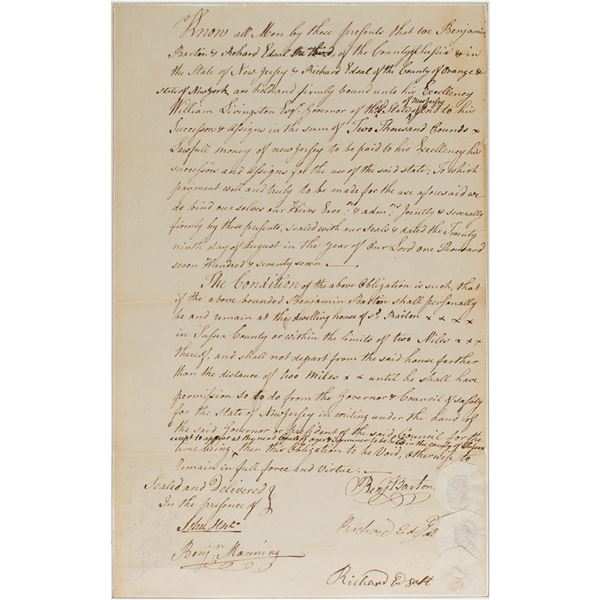 Know all Men by these presents that we Benjamin
Barton & Richard Edsal the third of the County of Sussix & in
the State of New Jersey & Richard Edsal of the County of Orange &
State of New York are held and firmly bound unto his Excellency
of New Jersey
William Livingston Esqr. Governor of the State and to his
Successors & Assigns in the sum of Two Thousand Pounds x
Lawfull money of new Jersey to be paid to his Excellency his
successors and Assigns for the use of the said state; To which
payment well and truly to be made for the use aforesaid we
do bind our selves our Heirs Execrs. & admrs. Jointly & severally
firmly by these presents, sealed with our seals & dated the Twenty
ninth day of August in the year of Our Lord one Thousand
seven Hundred & seventy seven
The Condition of the above Obligation is such, that
if the above bounded Benjamin Barton shall personally
be and remain at the dwelling house of sd. Barton x x x x
in Sussex County or within the limits of two Miles x x x
thereof and shall not depart from the said house farther
than the distance of two miles x x until he shall have
permission so to do from the Governor & Council of safety
for the State of New Jersey in writing under the hand of
the said Governor or president of the said Council for the
except to appear at the next Court of in the County of Sussex
time being then this Obligation to be Void, otherwise to
remain in full force and Virtue.
Sealed and Delivered
In the presence of
Benjn. Manning
Benjn. Barton
Richard Ed
Richard Edsall